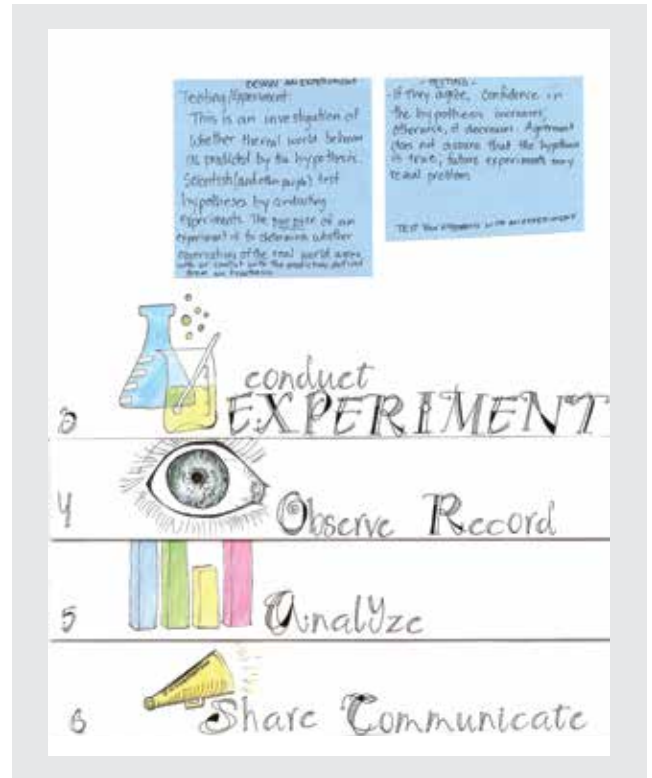 DESIGN AN EXPERIMENT
Testing/Experiment:
This is an investigation of
whether the real world behaves
as predicted by the hypothesis.
Scientists (and other people) test
hypotheses by conducting
experiments. The purpose of an
experiment is to determine whether
observations of the real world agree
with or conflict with the predictions derived
from an hypothesis
- TESTING -
- If they agree, confidence in
the hypothesis increases;
otherwise, it decreases. Agreement
does not assure that the hypothesis
is true; future experiments may
reveal problems
TEST YOUR HYPOTHESIS WITH AN EXPERIMENT
3
conduct
EXPERIMENT
4 Observe Record
5 Analyze
6 Share Communicate